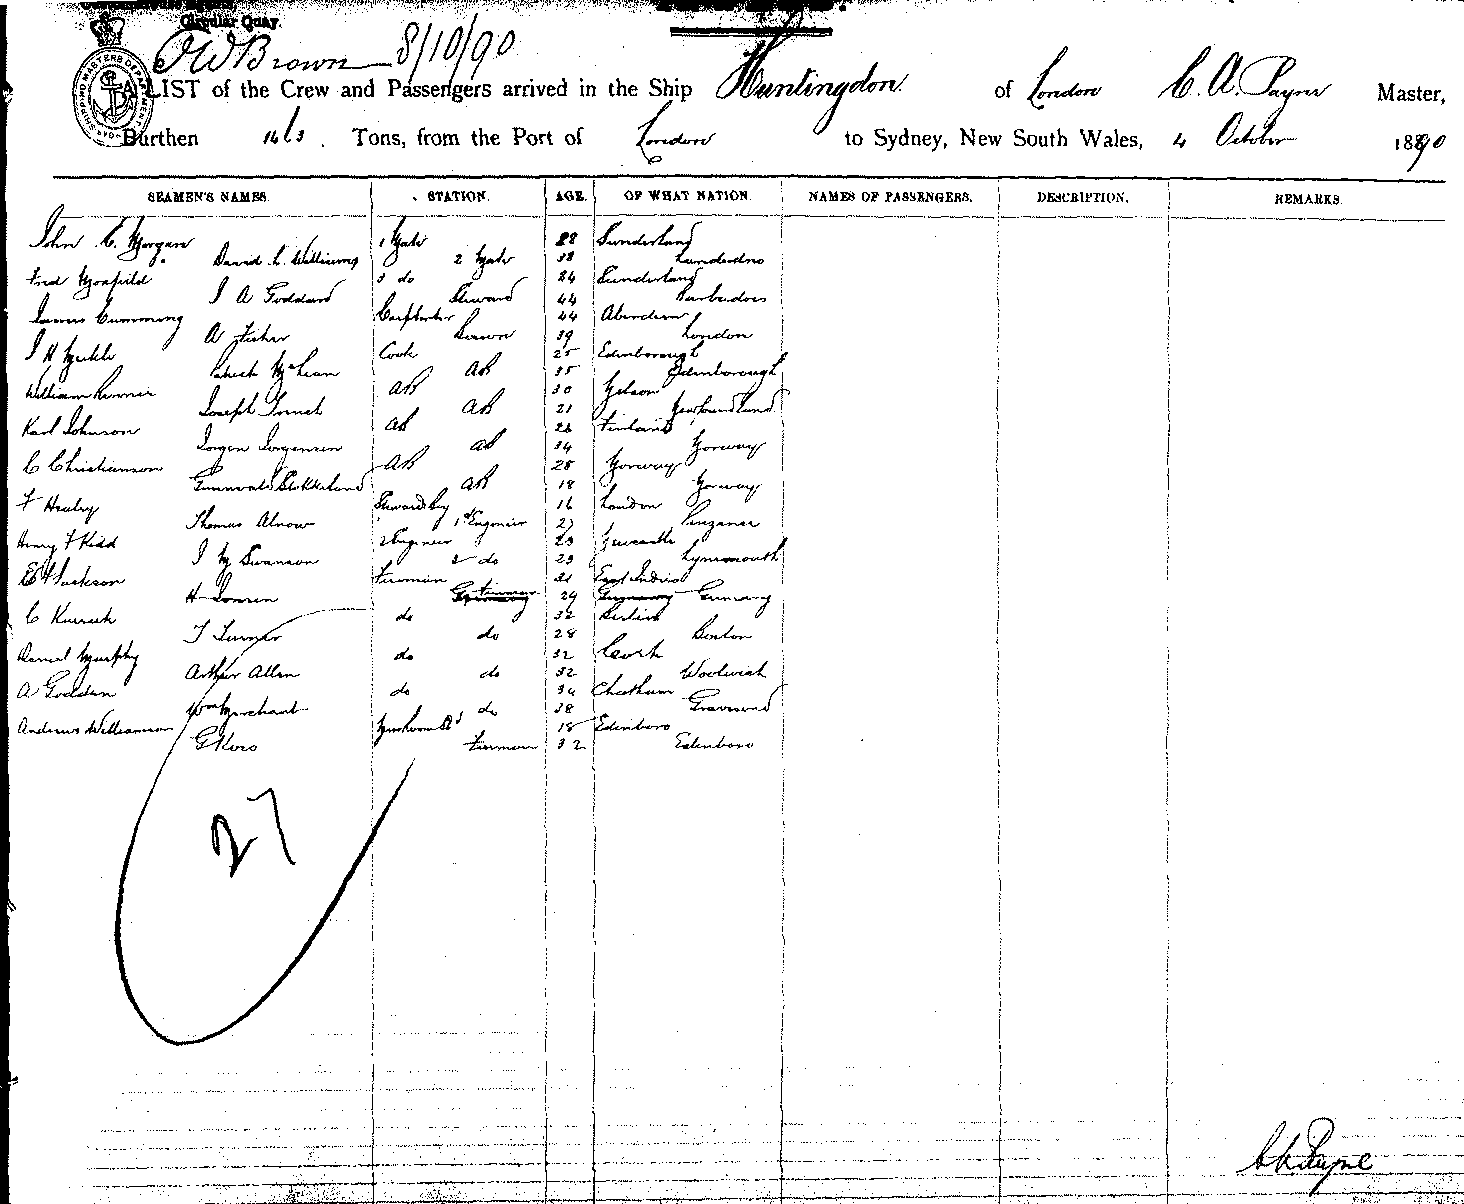 Circular Quay.
SHIPPING MASTERS DEPARTMENT
J W Brown 8/10/90
A LIST of the Crew and Passengers arrived in the Ship Huntingdon of London C. A. Payne Master,
Burthen 1463 Tons, from the Port of London to Sydney, New South Wales, 4 October 1890
SEAMEN'S NAMES. STATION. AGE. OF WHAT NATION. NAMES OF PASSENGERS. DESCRIPTION. REMARKS.
John C. Morgan 1 Mate 28 Sunderland
David L. Williams 2 Mate 38
Fred 3 do 24 Sunderland
J A Goddard Steward 44 Barbadoes
James Cumming Carpenter 44 Aberdeen
A Fisher Bosun 39 London
J H Cook 25 Edenborough
McLean AB 35 Edenborough
William AB 30 Nelson
Joseph AB 21 Newfoundland
Karl Johnson AB 26 Finland
Jorgen Jorgensen AB 34 Norway
C Christianson AB 28 Norway
AB 18 Norway
F Healey Stewards Boy 16 London
Thomas 1st Engineer 27 Penzance
Henry F Kidd 2 Engineer 23 Newcastle
J M Swanson 2 do 23 Tynemouth
Jackson Fireman 21 East Indies
H Jansen Fireman 29 Germany
C do 32 Berlin
T Turner do 28 Boston
Daniel Murphy do 32 Cork
Arthur Allen do 32 Woolwich
A Godden do 34 Chatham
Wm Merchant do 38 Gravesend
Andrew Williamson 18 Edenboro
G Fireman 32 Edenboro
27
C A Payne